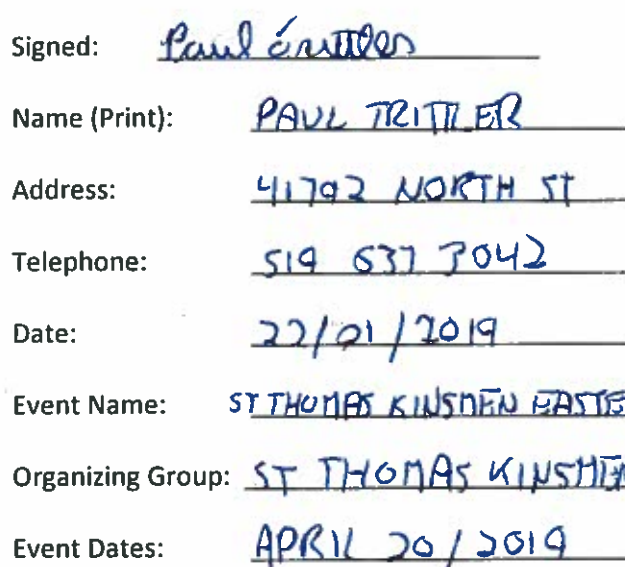 Signed: Paul
Name (Print): PAUL TRITTLER
Address: 41792 NORTH ST
Telephone: 519 637 3042
Date: 22/01/2019
Event Name: ST THOMAS KINSMEN EASTE
Organizing Group: ST THOMAS KINSMEN
Event Dates: APRIL 20/2019